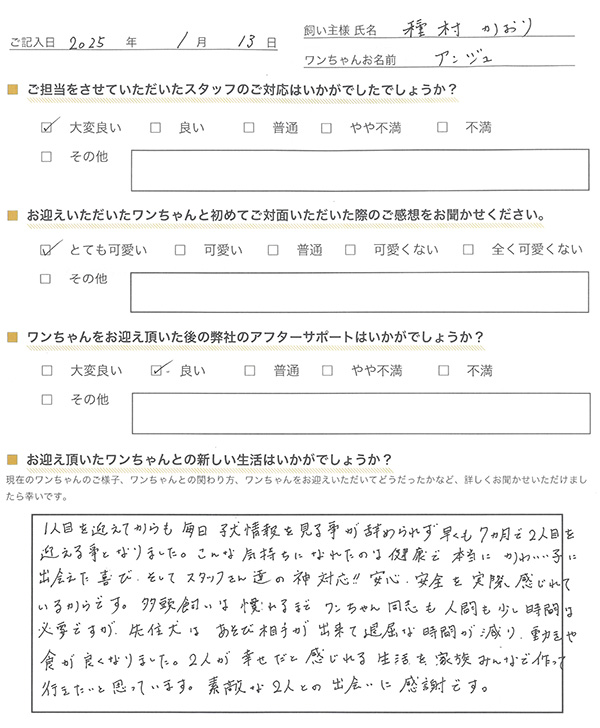 ご記入日 2025 年 1 月 13 日
飼い主様 氏名 種村 かおり
ワンちゃんお名前 アンジュ
■ ご担当をさせていただいたスタッフのご対応はいかがでしたでしょうか？
☑ 大変良い □ 良い □ 普通 □ やや不満 □ 不満
□ その他
■ お迎えいただいたワンちゃんと初めてご対面いただいた際のご感想をお聞かせください。
☑ とても可愛い □ 可愛い □ 普通 □ 可愛くない □ 全く可愛くない
□ その他
■ ワンちゃんをお迎え頂いた後の弊社のアフターサポートはいかがでしょうか？
□ 大変良い ☑ 良い □ 普通 □ やや不満 □ 不満
□ その他
■ お迎え頂いたワンちゃんとの新しい生活はいかがでしょうか？
現在のワンちゃんのご様子、ワンちゃんとの関わり方、ワンちゃんをお迎えいただいてどうだったかなど、詳しくお聞かせいただけまし
たら幸いです。
1人目を迎えてからも毎日子犬情報を見る事が辞められず早くも7カ月で2人目を
迎える事となりました。こんな気持ちになれたのは健康で本当にかわいい子に
出会えた喜び、そしてスタッフさん達の神対応!!安心、安全を実際感じれて
いるからです。多頭飼いは慣れるまでワンちゃん同志も人間も少し時間は
必要ですが、先住犬はあそび相手が出来て退屈な時間が減り、動きや
食が良くなりました。2人が幸せだと感じれる生活を家族みんなで作って
行きたいと思っています。素敵な2人との出会いに感謝です。